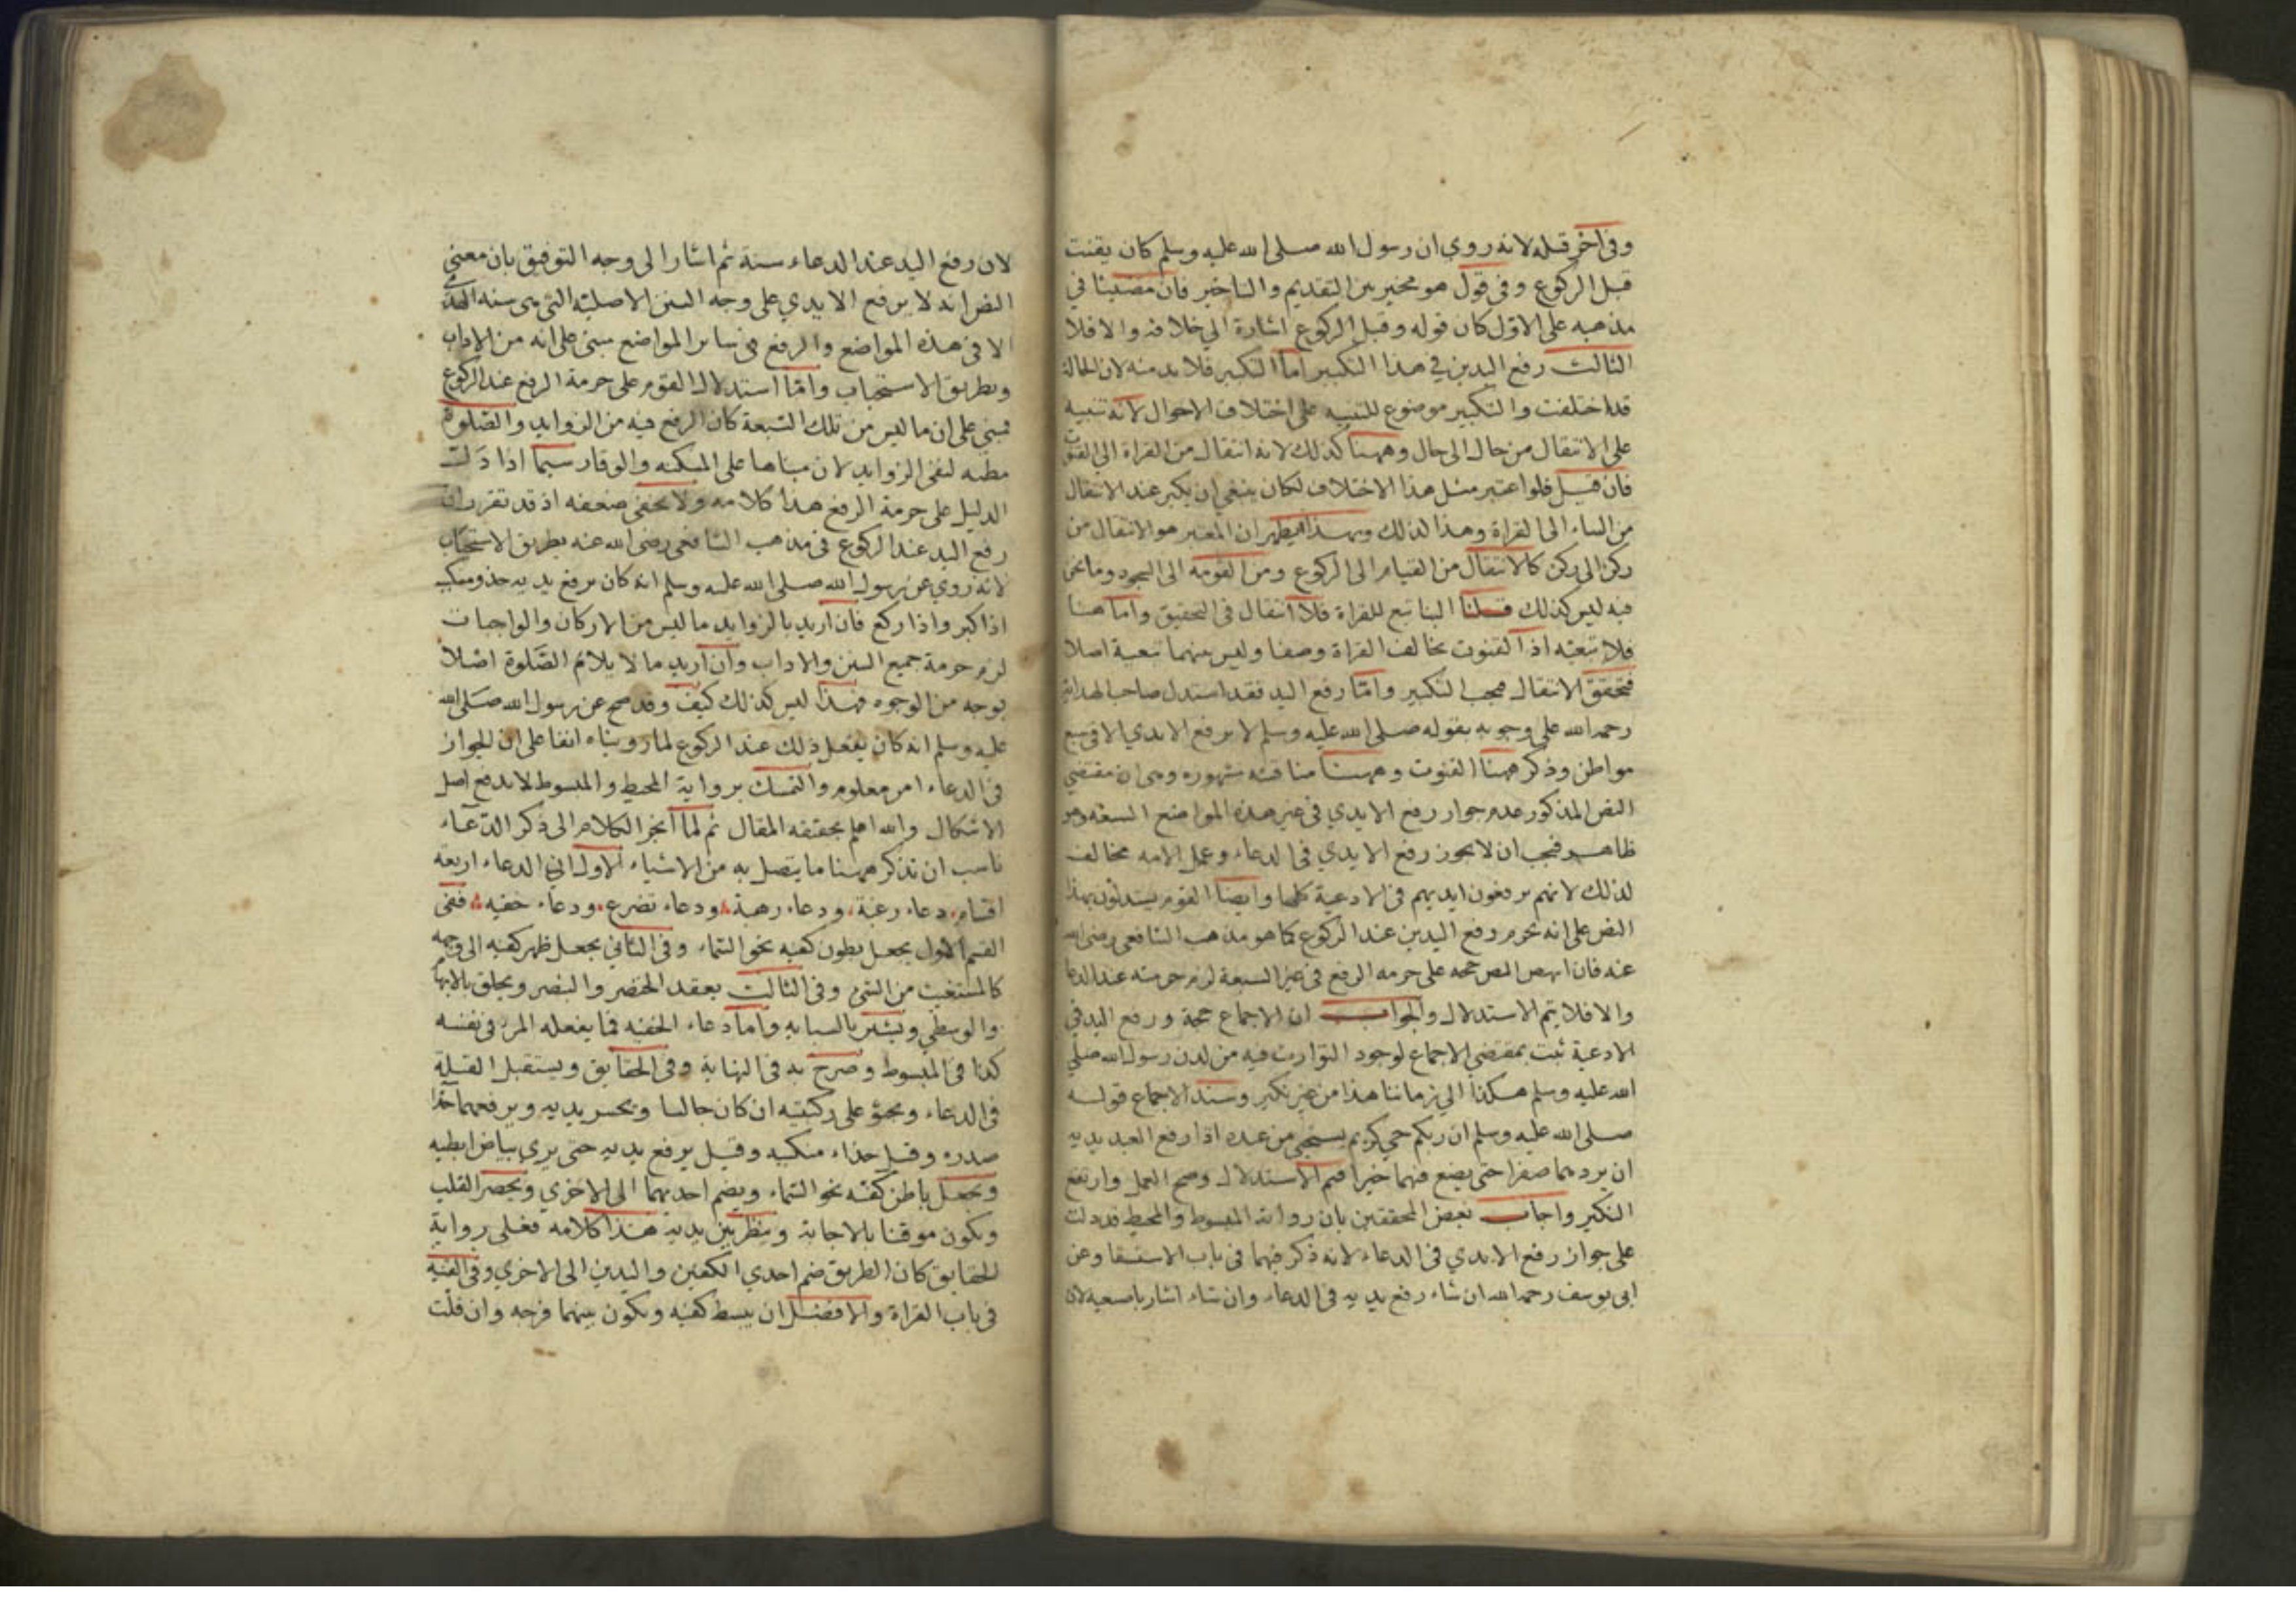 وفى اخر قبله لانه روي ان رسول الله صلى الله عليه وسلم كان يقنت
قبل الركوع وفى قول هو مخير بين التقديم والتاخير فان مضينا في
مذهبه على الاول كان قوله وقبل الركوع اشارة الي خلافه والا فلا
الثالث رفع اليدين في هذا التكبير اما التكبير فلا بد منه لان الحالة
قد اختلفت والتكبير موضوع للتنبيه على اختلاف الاحوال لانه تنبيه
على الانتقال من حال الى حال وههنا كذلك لانه انتقال من القراة الي القنوت
فان قيل فلو اعتبر مثل هذا الاختلاف لكان ينبغي ان يكبر عند الانتقال
من الثناء الى القراة وهذا لذلك وبهذا يظهر ان المعتبر هو الانتقال من
ركن الى ركن كالانتقال من القيام الى الركوع ومن القومة الى السجود وما نحن
فيه ليس كذلك قلنا الثنا تبع للقراة فلا انتقال فى التحقيق واما هنا
فلا تبعية اذ القنوت يخالف القراة وصفا وليس بينهما تبعية اصلا
فتحقق الانتقال فيجب التكبير واما رفع اليد فقد استدل صاحب الهداية
رحمه الله على وجوبه بقوله صلى الله عليه وسلم لا يرفع الايدي الا في سبع
مواطن وذكر ههنا القنوت وههنا مناقشة مشهورة وهى ان مقتضي
النص المذكور عدم جواز رفع الايدي فى غير هذه المواضع السبعة وهو
ظاهر فيجب ان لا يجوز رفع الايدي فى الدعاء وعمل الامه مخالف
لذلك لانهم يرفعون ايديهم فى الادعية كلها وايضا القوم يستدلون بهذا
النص على انه يحرم رفع اليدين عند الركوع كما هو مذهب الشافعى رضى الله
عنه فان انهض النص حجه على حرمه الرفع فى غير السبعة لزم حرمته عند الدعا
والا فلا يتم الاستدلال والجواب ان الاجماع حجة ورفع اليد فى
الادعية ثبت بمقتضي الاجماع لوجود التوارث فيه من لدن رسول الله صلي
الله عليه وسلم هكذا الي زماننا هذا من غير نكير وسند الاجماع قوله
صلى الله عليه وسلم ان ربكم حي كريم يستحيي من عبده اذا رفع العبد يديه
ان يردهما صفرا حتى يضع فيهما خيرا فتم الاستدلال وصح العمل وارتفع
النكير واجاب بعض المحققين بان رواية المبسوط والمحيط قد دلت
على جواز رفع الايدي فى الدعاء لانه ذكر فيهما فى باب الاستسقا وعن
ابى يوسف رحمه الله ان شاء رفع يديه فى الدعاء وان شاء اشار باصبعيه لان
لان رفع اليد عند الدعاء سنة ثم اشار الى وجه التوفيق بان معنى
النص انه لا يرفع الايدي على وجه السنن الاصلية التى هى سنة الهدى
الا فى هذه المواضع والرفع فى سائر المواضع مبنى على انه من الاداب
وبطريق الاستحباب واما استدلال القوم على حرمة الرفع عند الركوع
فمبنى على ان ما ليس من تلك السبعة كان الرفع فيه من الزوايد والصلوة
مظنه لنفى الزوايد لان مبناها على السكينه والوقار سيما اذا دلت
الدليل على حرمة الرفع هذا كلامه ولا يخفى ضعفه اذ قد تقرر ان
رفع اليد عند الركوع فى مذهب الشافعى رضى الله عنه بطريق الاستحباب
لانه روي عن رسول الله صلى الله عليه وسلم انه كان يرفع يديه حذو منكبيه
اذا كبر واذا ركع فان اريد بالزوايد ما ليس من الاركان والواجبات
لزم حرمة جميع السنن والاداب وان اريد ما لا يلائم الصلوة اصلا
بوجه من الوجوه فهذا ليس كذلك كيف وقد صح عن رسول الله صلى الله
عليه وسلم انه كان يفعل ذلك عند الركوع لما رويناه انفا على ان الجواز
فى الدعاء امر معلوم والتمسك برواية المحيط والمبسوط لا يدفع اصل
الاشكال والله اعلم بحقيقة المقال ثم لما انجر الكلام الى ذكر الدعاء
ناسب ان نذكر ههنا ما يتصل به من الاشياء الاول ان الدعاء اربعة
اقسام دعاء رغبة ودعاء رهبة ودعاء تضرع ودعاء خفيه ففى
القسم الاول يجعل بطون كفيه نحو السماء وفى الثاني يجعل ظهر كفيه الى وجهه
كالمستغيث من الشئ وفى الثالث يعقد الخنصر والبنصر ويحلق بالابهام
والوسطي ويشير بالسبابه واما دعاء الخفيه فما يفعله المرء فى نفسه
كذا فى المبسوط وصرح به فى النهاية وفى الحقايق ويستقبل القبلة
فى الدعاء ويجثو على ركبتيه ان كان جالسا ويحسر يديه ويرفعهما حذا
صدره وقيل حذاء منكبيه وقيل يرفع يديه حتى يري بياض ابطيه
ويجعل باطن كفيه نحو السماء ويضم احديهما الى الاخري ويحضر القلب
ويكون موقنا بالاجابة وينظر بين يديه هذا كلامه فعلى رواية
الحقايق كان الطريق ضم احدي الكفين واليدين الى الاخري وفى القنية
فى باب القراة والافضل ان يبسط كفيه ويكون بينهما فرجه وان قلت